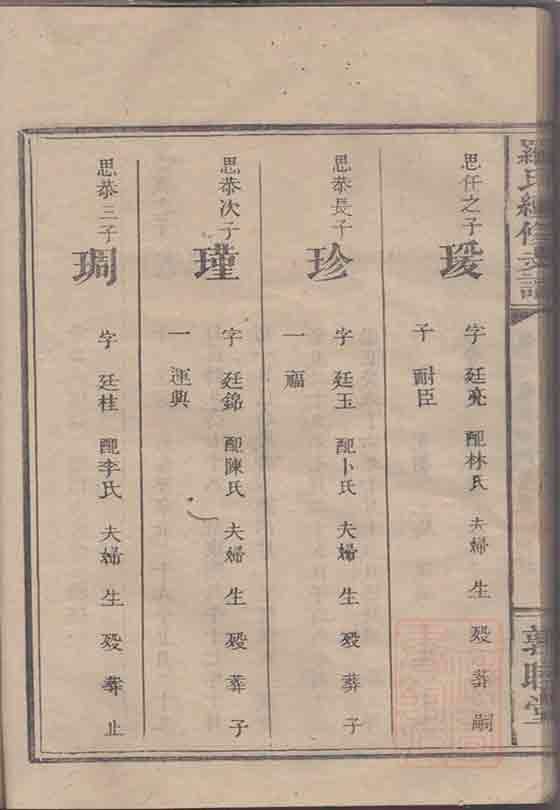 羅氏修支譜
敦睦堂
思任之子
瑗
字廷亮配林氏夫婦生歿葬嗣
子耐臣
思恭長子
珍
字廷玉配卜氏夫婦生歿葬子
一福
思恭次子
瑾
字廷錦配陳氏夫婦生歿葬子
一運興
思恭三子
琱
字廷桂配李氏夫婦生歿葬止